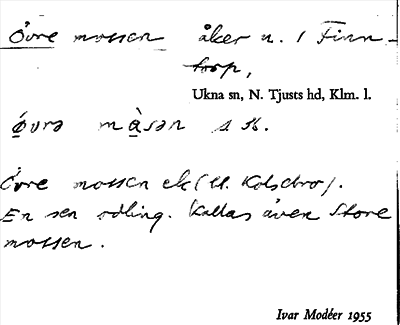 Övre mossen åker n. / Finn-
torp,
Ukna sn, N. Tjusts hd, Klm. l.
ǿvrə màsən s. sk.
Övre mossen ek (U. Kolsebro).
En sen odling. Kallas även Store
mossen.
Ivar Modéer 1955